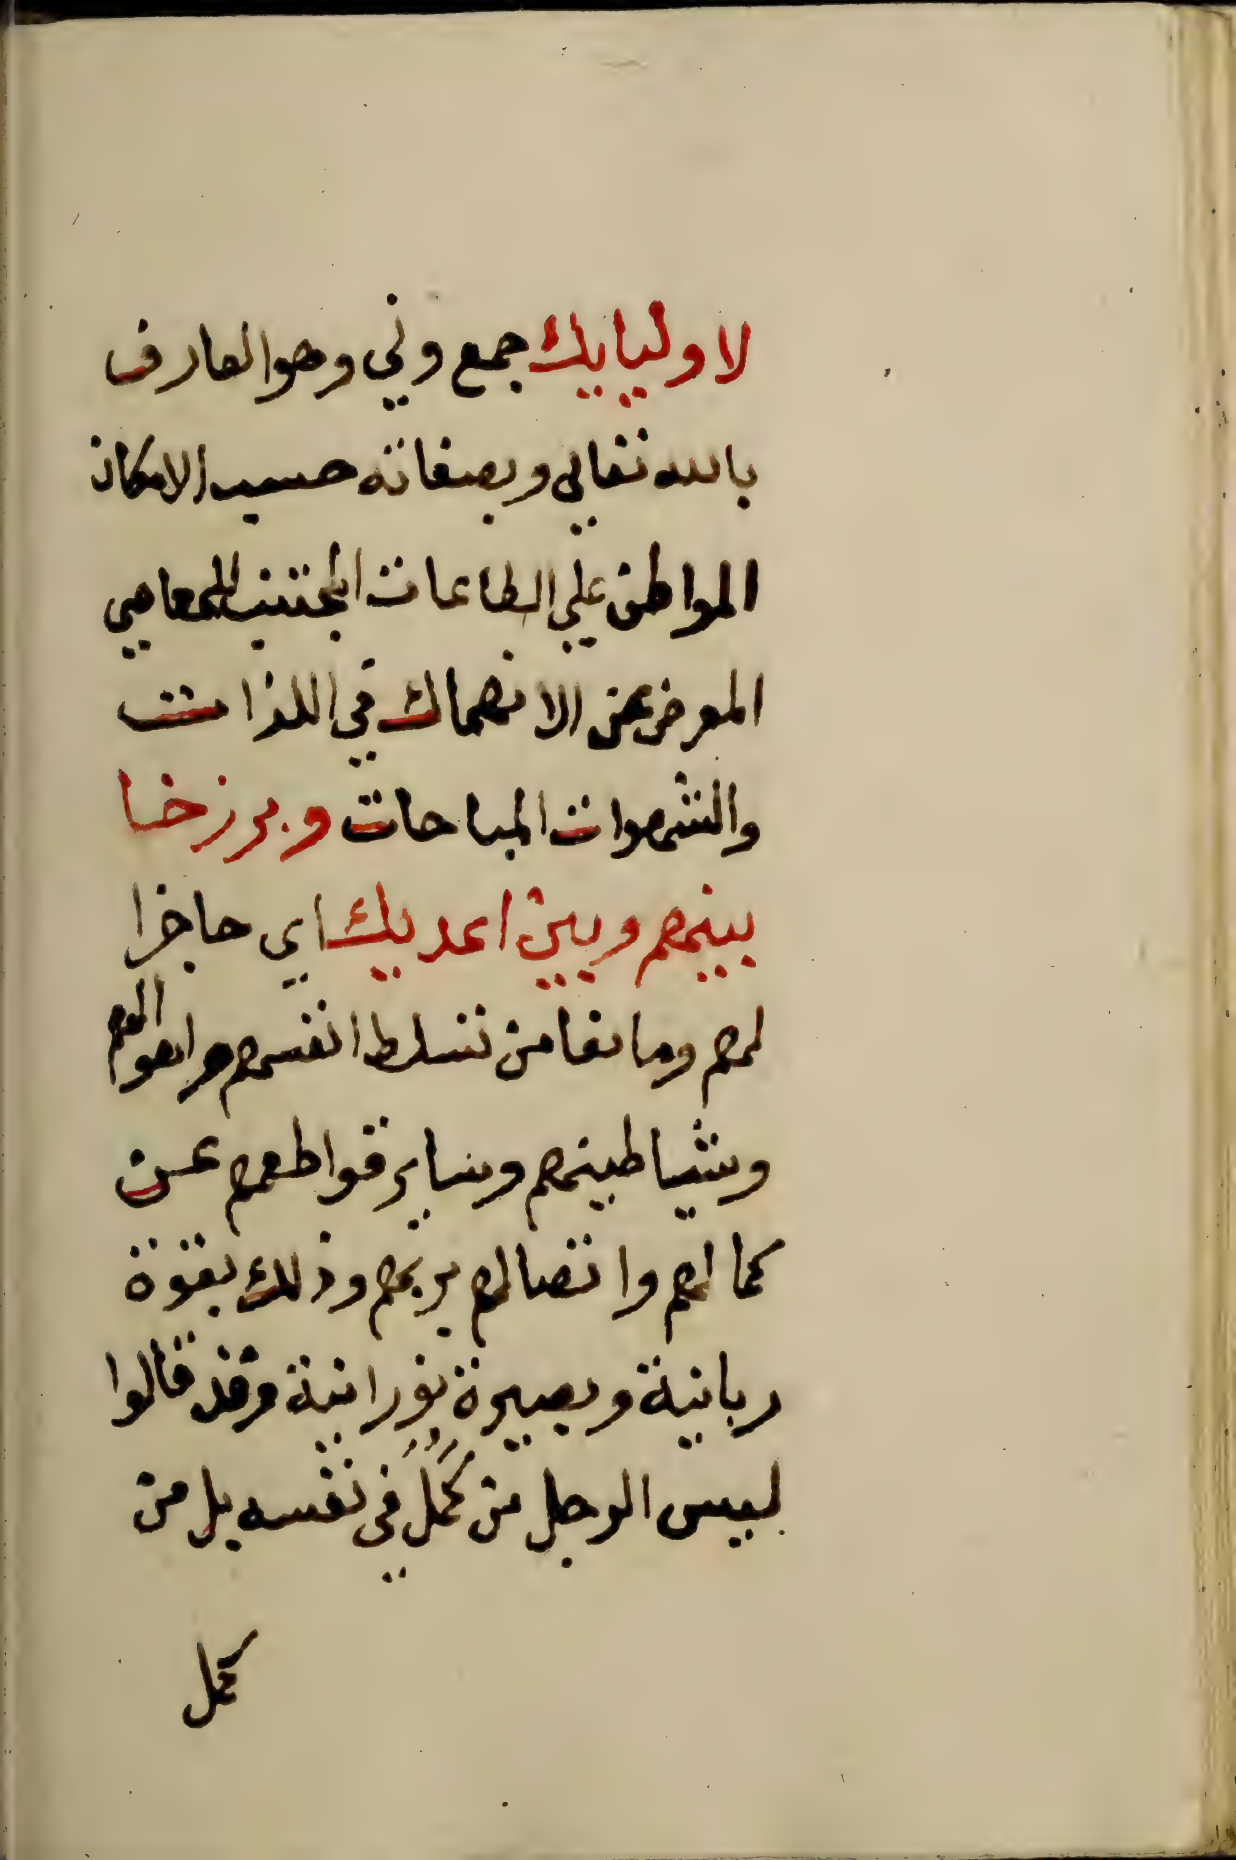 لاوليايك جمع ولي وهو العارف
بالله تعالي وبصفاته حسب الامكان
المواطن علي الطاعات المجتنب للمعاصي
المعرض عن الانهماك في اللذات
والشهوات المباحات وبرزخا
بينهم وبين اعديك اي حاجزا
لهم ومانعا من تسلط انفسهم واهوالهم
وشياطينهم وساير قواطعهم عن
كمالهم واتصالهم بربهم وذلك بقوة
ربانية وبصيرة نورانية وقد قالوا
ليس الرجل من كمُل في نفسه بل من
كمل